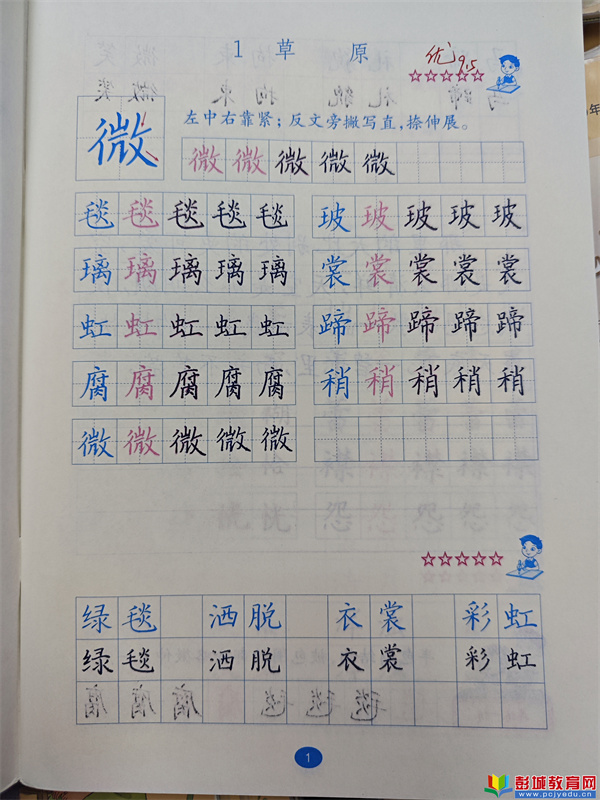 1 草 原
优 95
左中右靠紧；反文旁撇写直，捺伸展。
微 微 微 微 微 微
毯 毯 毯 毯 毯 玻 玻 玻 玻 玻
璃 璃 璃 璃 璃 裳 裳 裳 裳 裳
虹 虹 虹 虹 虹 蹄 蹄 蹄 蹄 蹄
腐 腐 腐 腐 腐 稍 稍 稍 稍 稍
微 微 微 微 微
绿 毯 洒 脱 衣 裳 彩 虹
绿 毯 洒 脱 衣 裳 彩 虹
1
彭城教育网
www.pcjyedu.cn